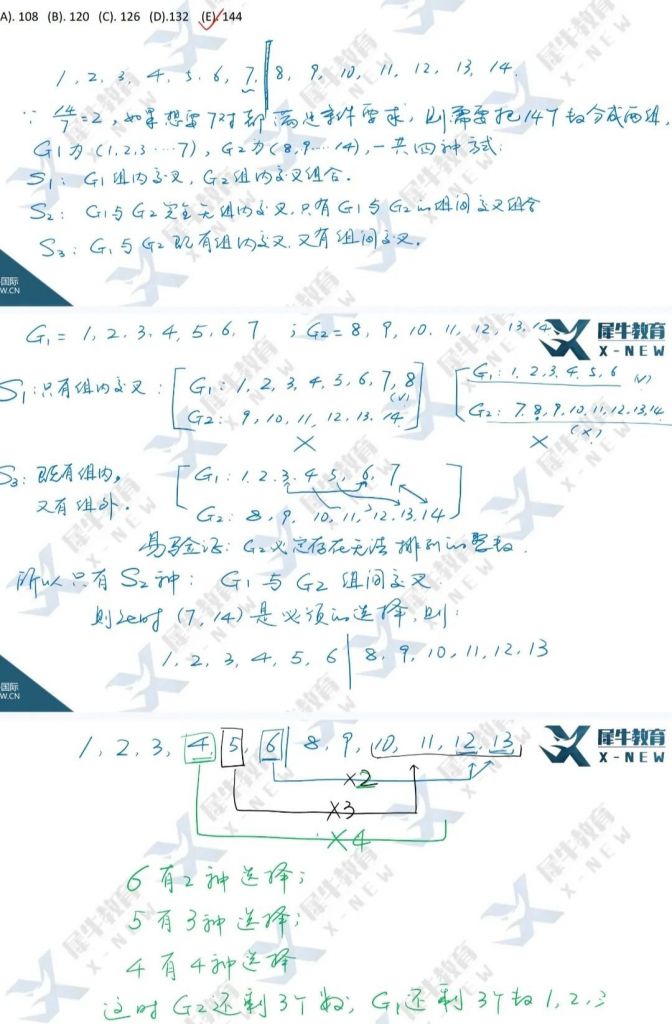 A). 108 (B). 120 (C). 126 (D).132 (E). 144
1, 2, 3, 4, 5, 6, 7, 8, 9, 10, 11, 12, 13, 14.
∵ 14/7=2, 如果想要7对都满足条件要求, 则需要把14个数分成两组,
G1为 (1,2,3……7), G2为 (8,9……14), 一共四种方式:
S1: G1组内交叉, G2组内交叉组合.
S2: G1与G2完全无组内交叉, 只有G1与G2的组间交叉组合
S3: G1与G2既有组内交叉, 又有组间交叉.
国际
W.CN
G1 = 1, 2, 3, 4, 5, 6, 7 ; G2 = 8, 9, 10, 11, 12, 13, 14
犀牛教育
X-NEW
S1: 只有组内交叉: G1: 1, 2, 3, 4, 5, 6, 7, 8 (√) G1: 1, 2, 3, 4, 5, 6 (√)
G2: 9, 10, 11, 12, 13, 14 G2: 7, 8, 9, 10, 11, 12, 13, 14 (×)
× ×
S3: 既有组内, G1: 1, 2, 3, 4, 5, 6, 7
又有组外. G2: 8, 9, 10, 11, 12, 13, 14
易验证: G2必定存在无法排列的整数.
所以只有S2种: G1与G2组间交叉.
则此时 (7, 14) 是必须的选择, 则:
1, 2, 3, 4, 5, 6 8, 9, 10, 11, 12, 13
国际
W.CN
1, 2, 3, 4, 5, 6 8, 9, 10, 11, 12, 13
犀牛教育
X-NEW
×2
×3
×4
6有2种选择;
5有3种选择;
4有4种选择
这时G2还剩3个数, G1还剩3个数1, 2, 3